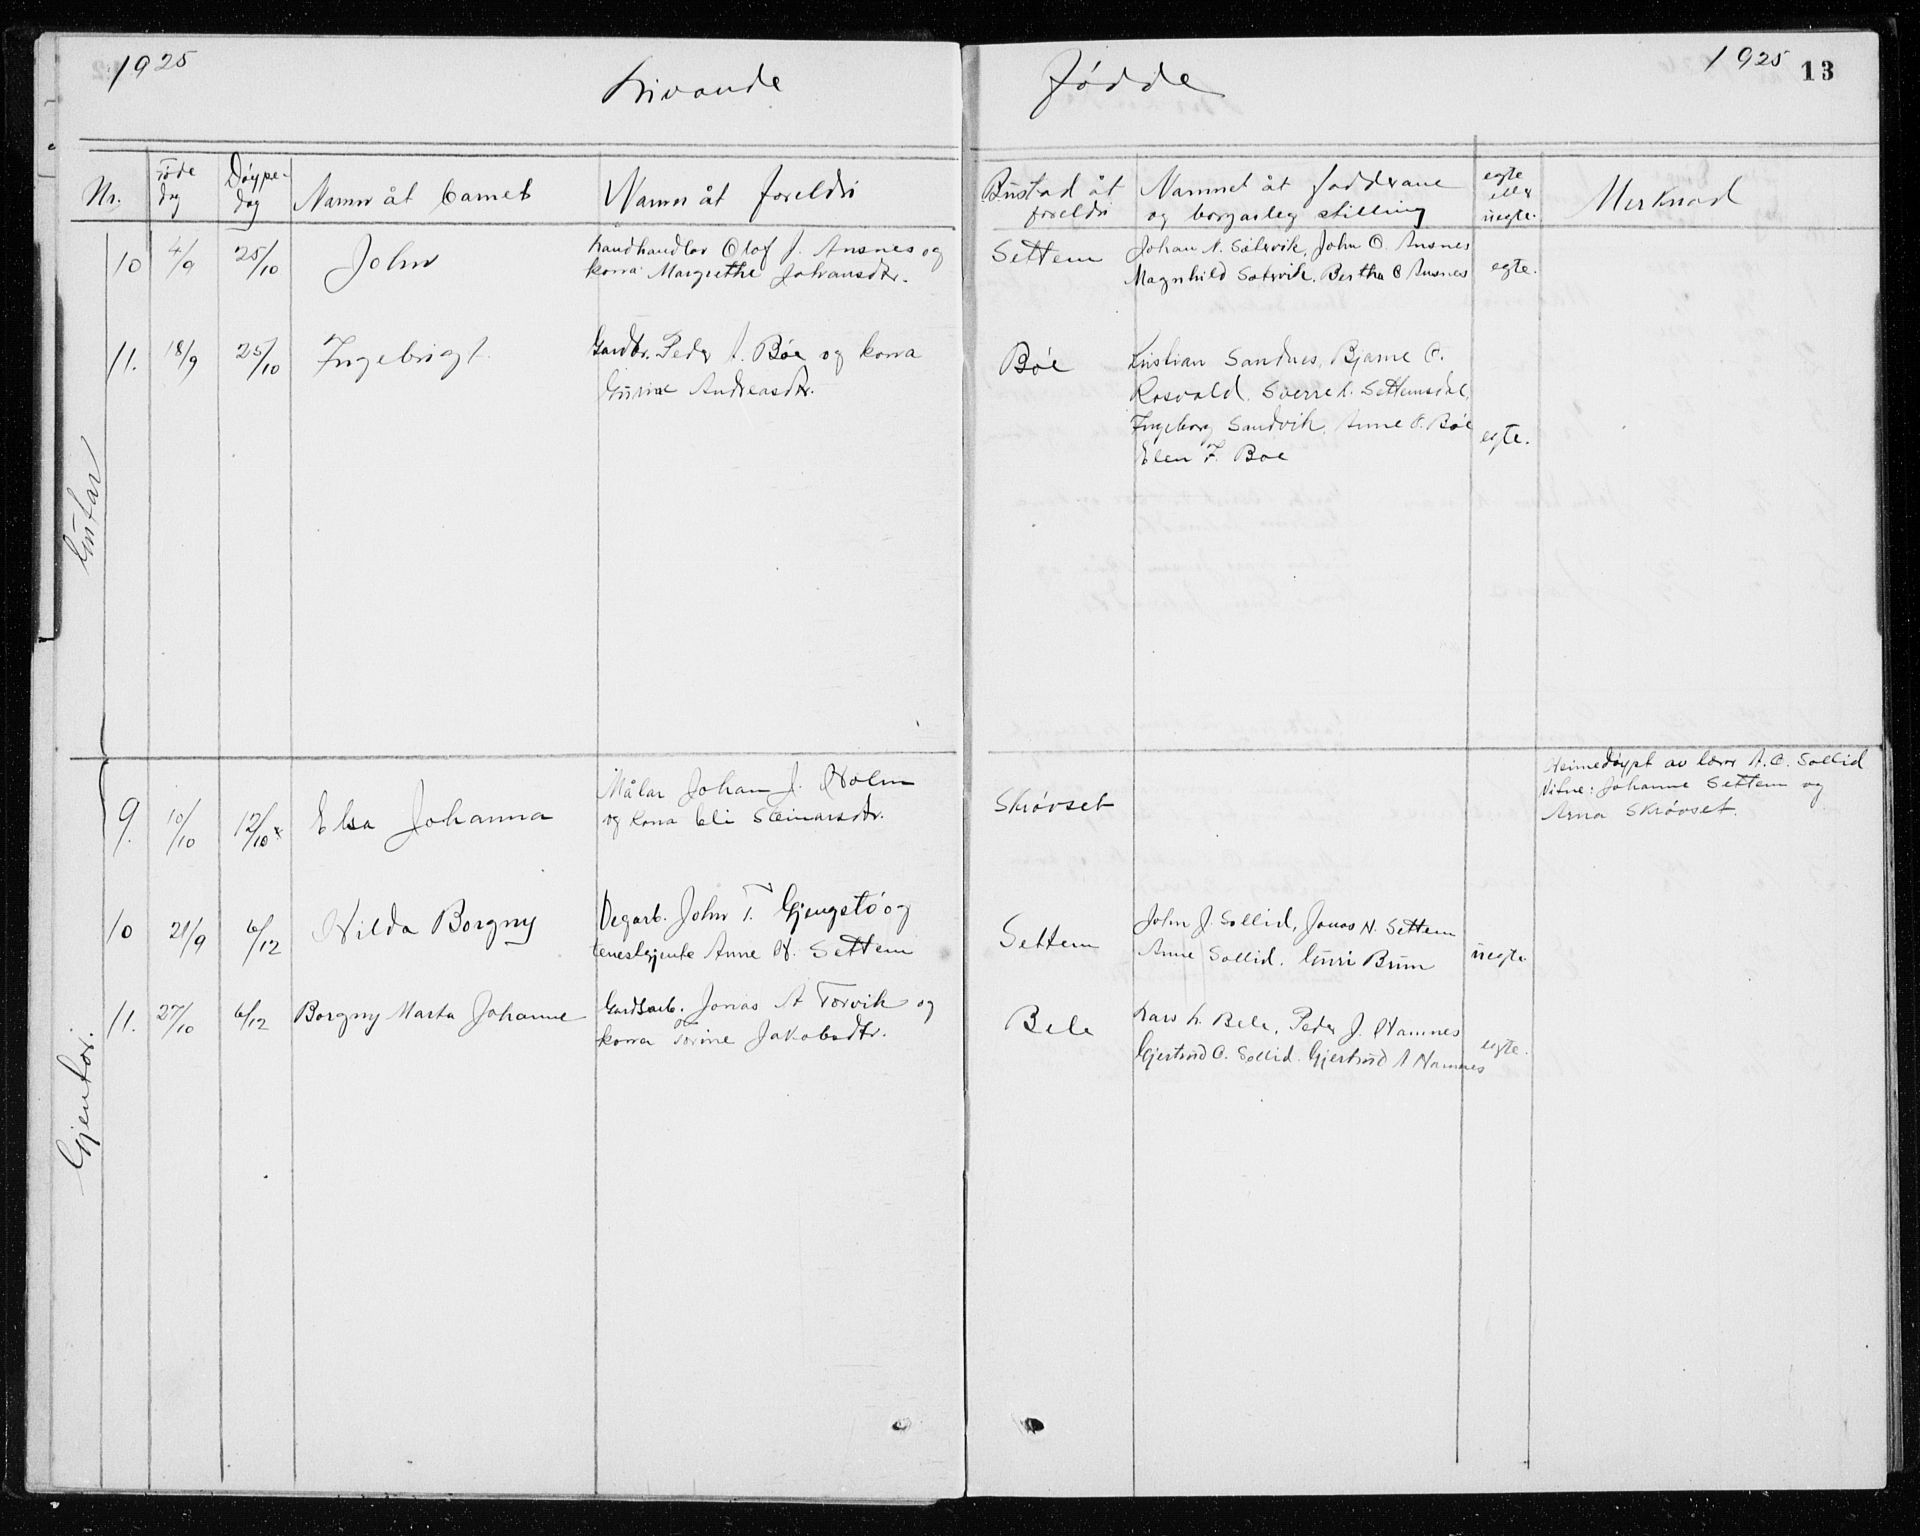 1925
Livande
Fødde
1925
13
Nr.
Føde
dag
Døype-
dag
Namn åt barnet
Namn åt foreldri
Bustad åt
foreldri
Namnet åt fadderane
og borgarleg stilling
egte
eller
uegte.
Merknad
Gutar
10 4/9 25/10 John
Landhandlar Olaf J. Ansnes og
kona Margrethe Johansdtr.
Settem
Johan N. Sætervik, John O. Ansnes
Magnhild Sætervik, Bertha O Ansnes
egte.
11. 18/9 25/10 Ingebrigt
Gardbr. Peder I. Bøe og kona
Gurine Andreasdtr.
Bøe
Kristian Sandnes, Bjarne O.
Rosvold, Sverre L. Settemsdal,
Ingeborg Sandvik, Anne P. Bøe
Elen F. Bøe
egte.
Gjentor.
9. 10/10 12/10 x Elsa Johanna
Målar Johan J. Holm
og kona Eli Steinarsdtr.
Skrøvset
Heimedøypt av lærar A. O. Sollid
Vitne: Johanne Settem og
Arna Skrøvset.
10 21/9 6/12 Hilda Borgny
Vegarb. John T. Gjengstø og
tenestgjente Anne H. Settem
Settem
John J. Sollid, Jonas H. Settem
Anne Sollid. Guri Brun
uegte
11. 27/10 6/12 Borgny Marta Johanne
Gardsarb. Jonas A Torvik og
kona Torine Jakobsdtr.
Bele
Lars L. Bele, Peder J. Hamnes
Gjertrud O. Sollid. Gjertrud A Hamnes
egte.